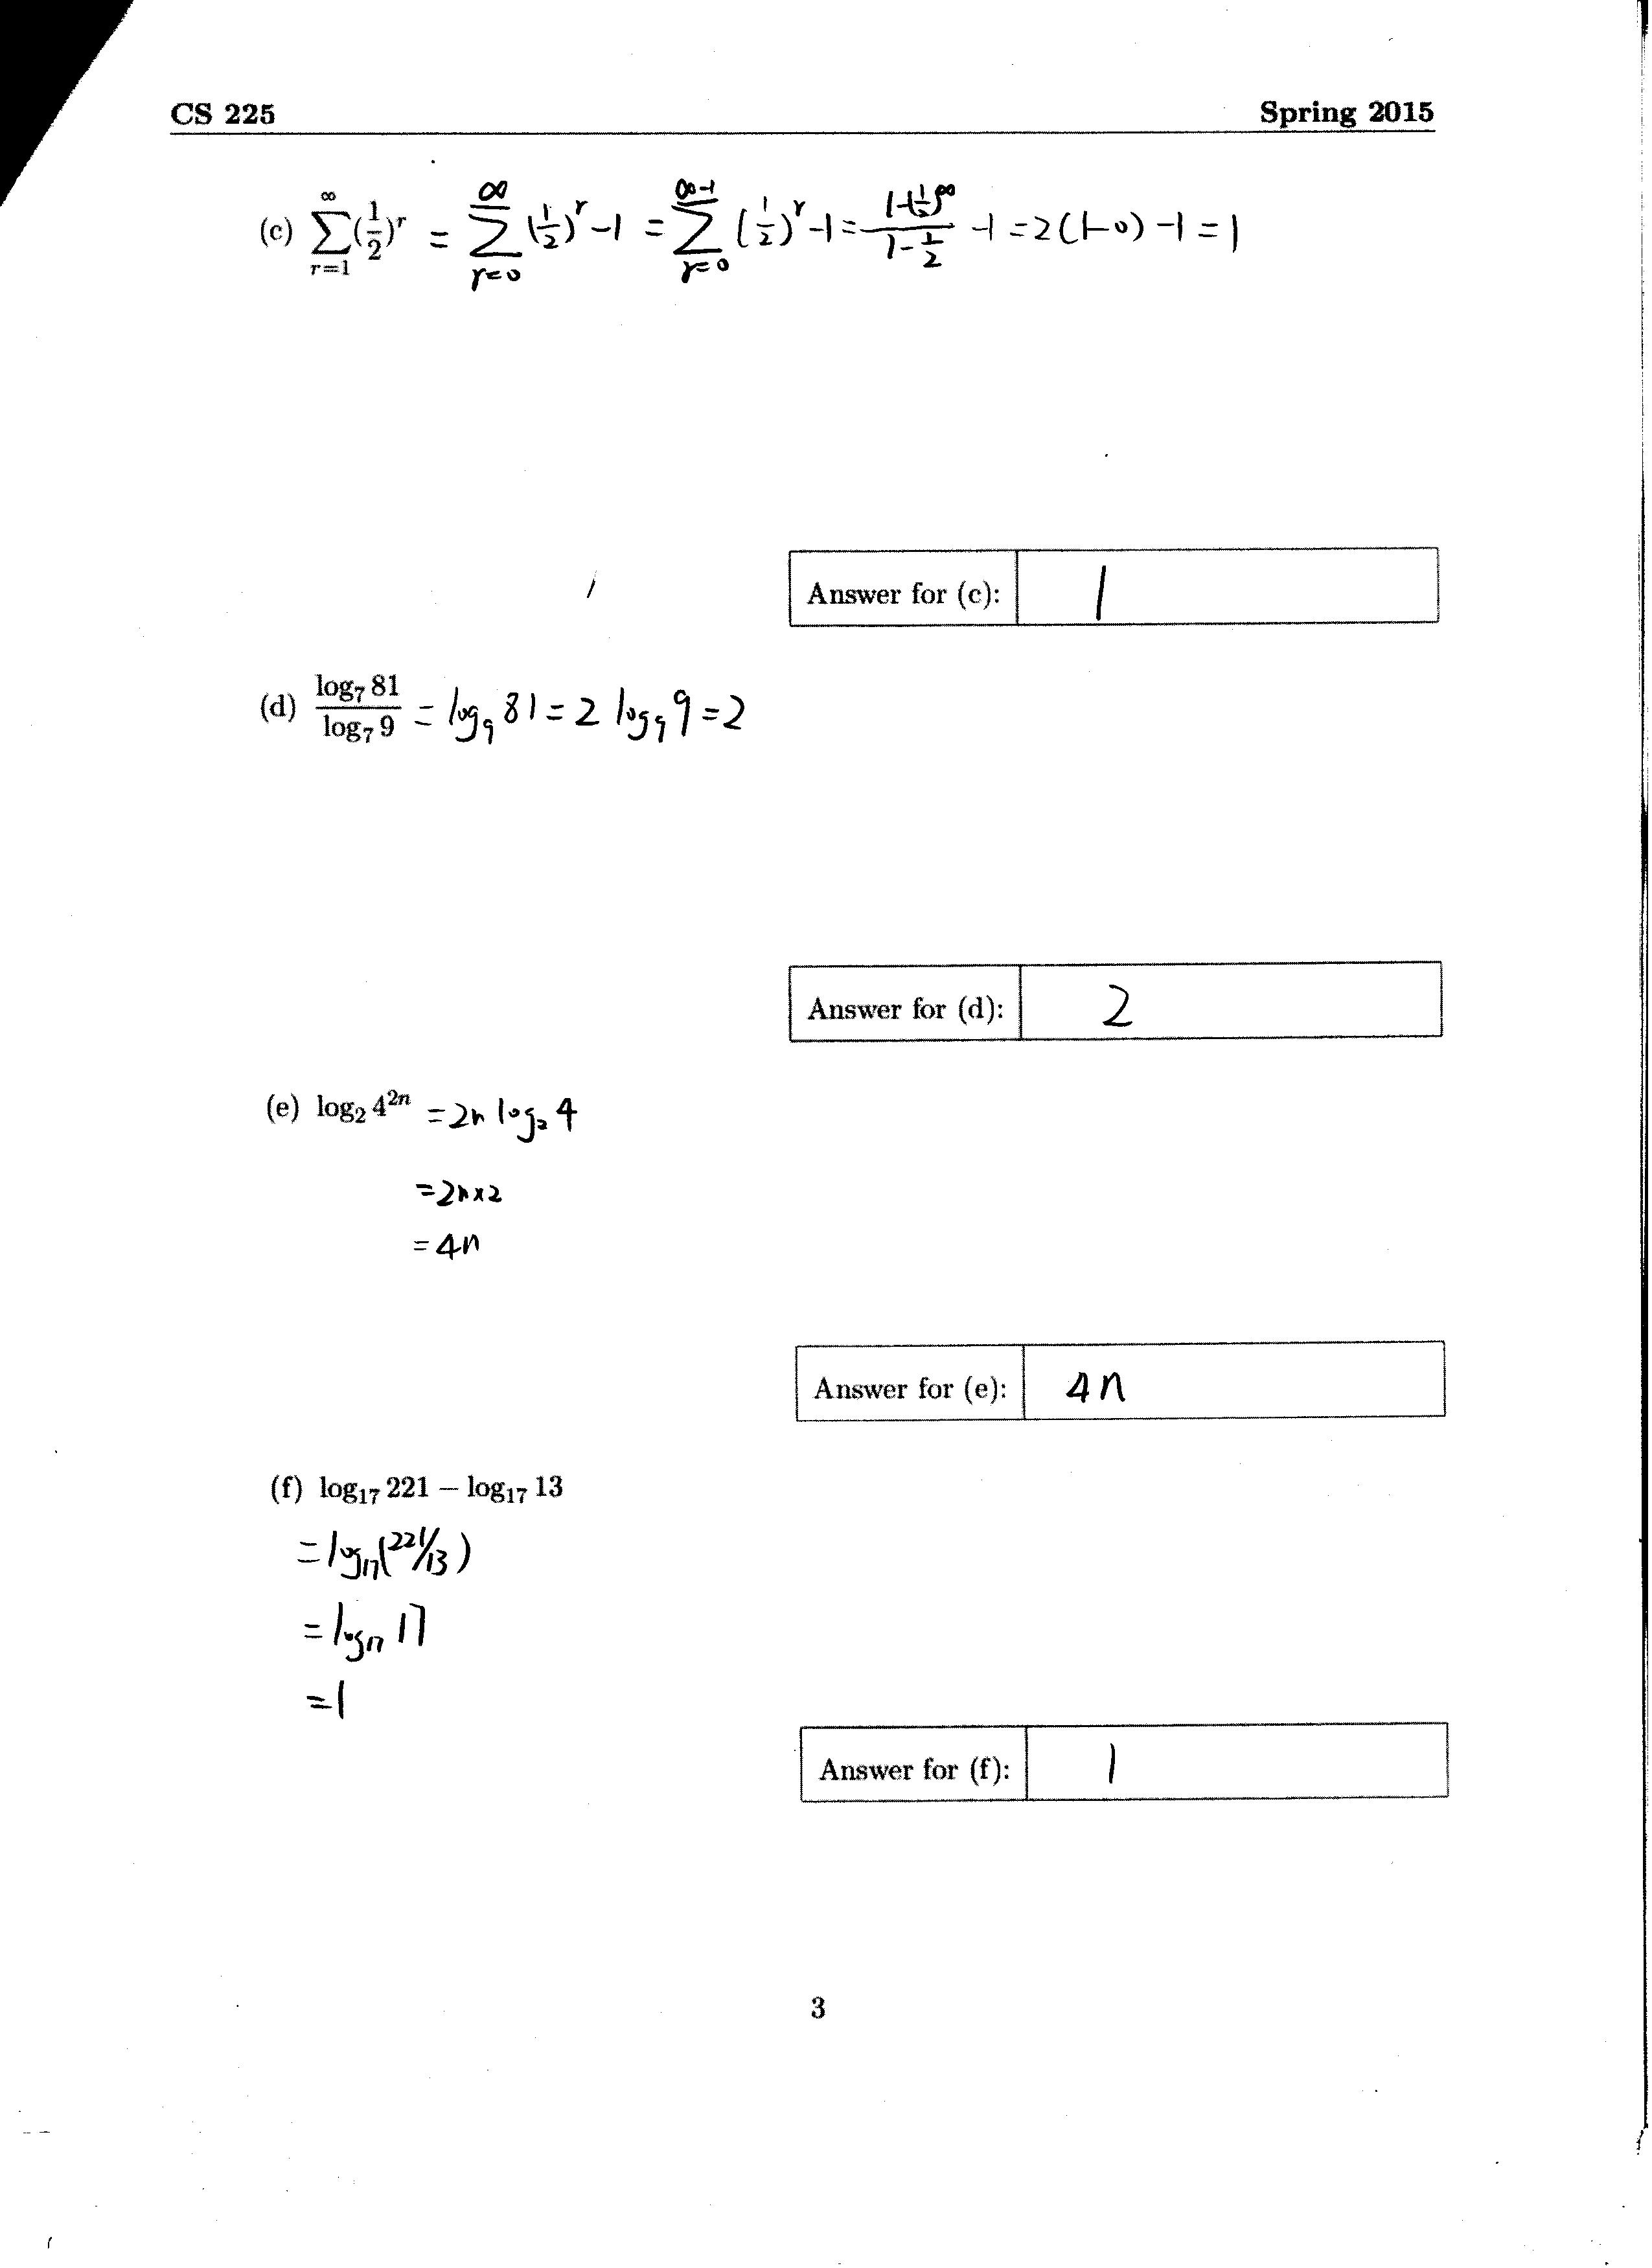 CS 225 Spring 2015
(c) ∑_{r=1}^{∞} (1/2)^r = ∑_{r=0}^{∞} (1/2)^r - 1 = ∑_{r=0}^{∞-1} (1/2)^r - 1 = (1-(1/2)^∞)/(1-1/2) - 1 = 2(1-0) - 1 = 1
Answer for (c): 1
(d) log₇ 81 / log₇ 9 = log₉ 81 = 2 log₉ 9 = 2
Answer for (d): 2
(e) log₂ 4²ⁿ = 2n log₂ 4
= 2n×2
= 4n
Answer for (e): 4n
(f) log₁₇ 221 − log₁₇ 13
= log₁₇(221/13)
= log₁₇ 17
= 1
Answer for (f): 1
3